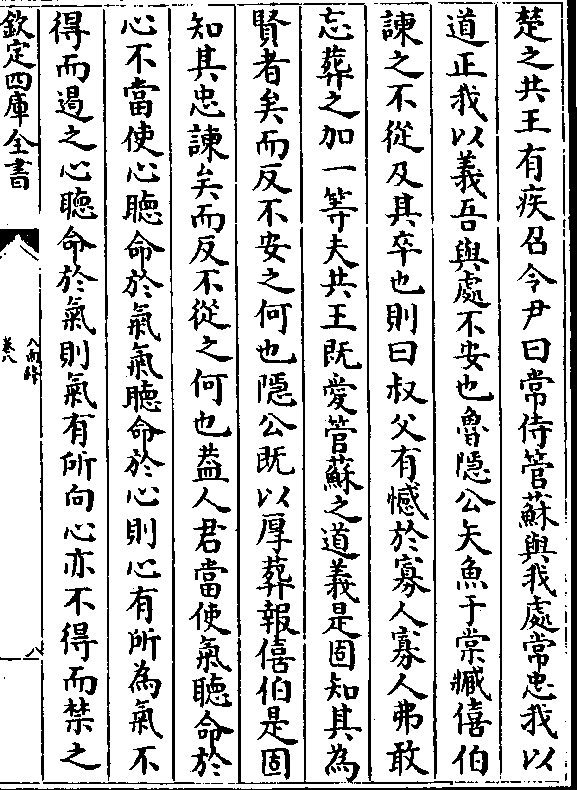 楚之共王有疾召令尹曰常侍管蘇與我處常忠我以
道正我以義吾與處不安也魯隱公矢魚于棠臧僖伯
諫之不從及其卒也則曰叔父有憾於寡人寡人弗敢
忘葬之加一等夫共王既愛管蘇之道義是固知其為
賢者矣而反不安之何也隱公既以厚葬報僖伯是固
知其忠諫矣而反不從之何也葢人君當使氣聽命於
心不當使心聽命於氣氣聽命於心則心有所為氣不
得而過之心聽命於氣則氣有所向心亦不得而禁之
欽定四庫全書
八面鋒
卷八
八